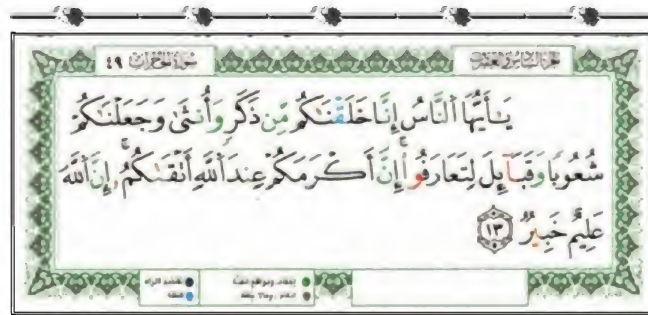 سُورَةُ الْحُجُرَاتِ ٤٩
الجُزْءُ السَّادِسُ وَالعِشْرُونَ
يَـٰٓأَيُّهَا ٱلنَّاسُ إِنَّا خَلَقْنَـٰكُم مِّن ذَكَرٍ وَأُنثَىٰ وَجَعَلْنَـٰكُمْ
شُعُوبًا وَقَبَآئِلَ لِتَعَارَفُوٓا۟ ۚ إِنَّ أَكْرَمَكُمْ عِندَ ٱللَّهِ أَتْقَىٰكُمْ ۚ إِنَّ ٱللَّهَ
عَلِيمٌ خَبِيرٌ ١٣
تفخيم الراء
قلقلة